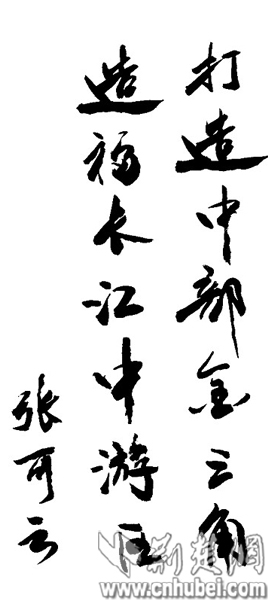 打造中部金三角
造福长江中游区
张可云
荆楚网
www.cnhubei.com